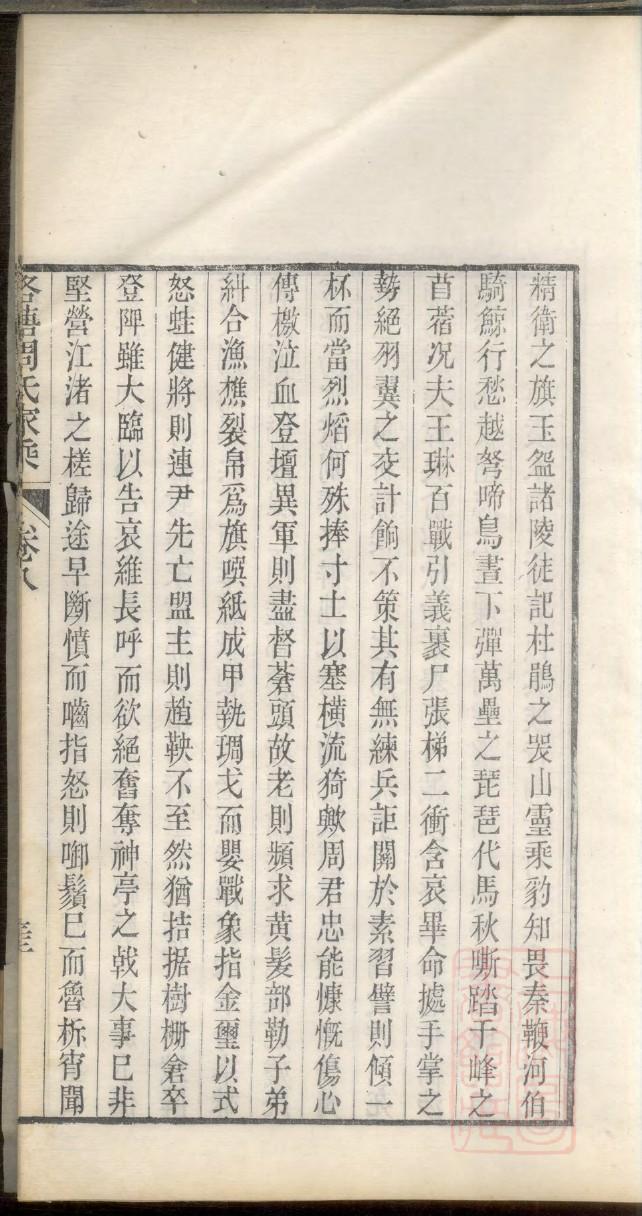 精衛之旗玉盌諸陵徒記杜鵑之哭山靈乘豹知畏秦鞭河伯
騎鯨行愁越弩啼鳥晝下彈萬壘之琵琶代馬秋嘶踏千峰之
苜蓿况夫王琳百戰引義裹尸張梯二衝含哀畢命摅手掌之
勢絕羽翼之交計餉不策其有無練兵詎關於素習譬則傾一
杯而當烈熖何殊捧寸土以塞橫流猗歟周君忠能慷慨傷心
傳檄泣血登壇異軍則盡督蒼頭故老則頻求黄髮部勒子弟
糾合漁樵裂帛爲旗嘆紙成甲執琱戈而嬰戰象指金璽以式
怒蛙健將則連尹先亡盟主則趙鞅不至然猶拮据樹栅倉卒
登陴雖大臨以告哀維長呼而欲絕奮奪神亭之戟大事已非
堅營江渚之槎歸途早斷憤而嚙指怒則啣鬚已而魯柝宵聞
周氏家乘 卷八